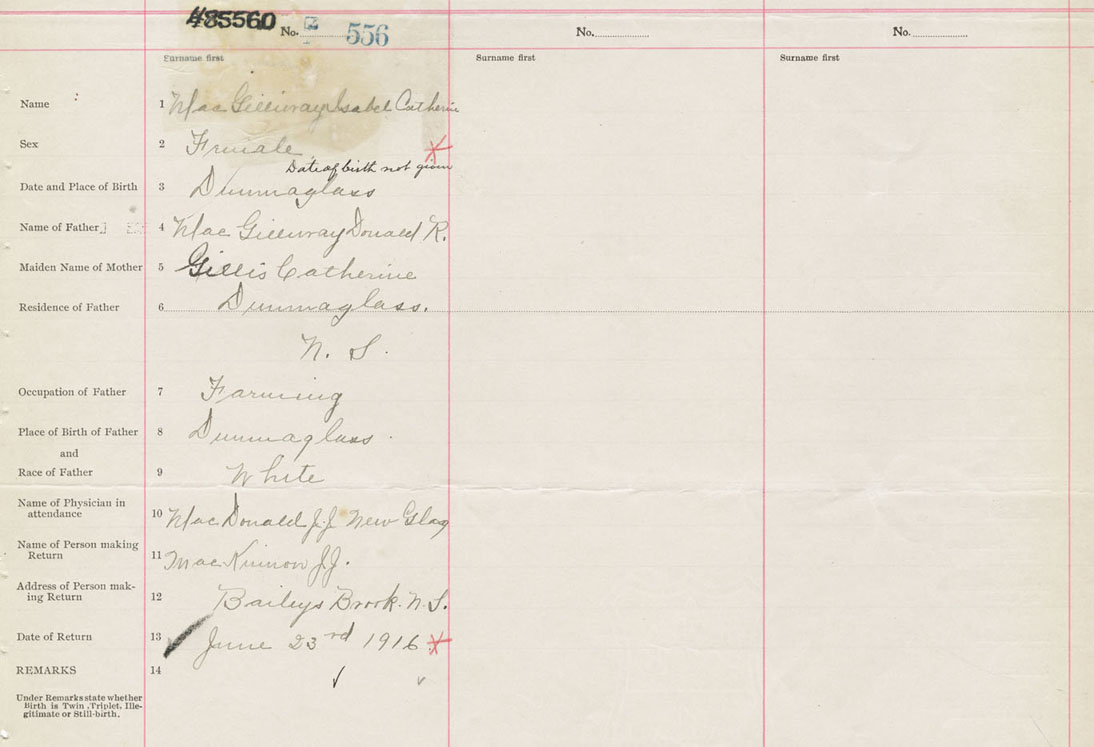 485560
No. 556
No.
No.
Surname first
Surname first
Surname first
Name 1 Mac Gillivray Isabel Catherine
Sex 2 Female
Date of birth not given
Date and Place of Birth 3 Dunmaglass
Name of Father 4 Mac Gillivray Donald R.
Maiden Name of Mother 5 Gillis Catherine
Residence of Father 6 Dunmaglass.
N. S.
Occupation of Father 7 Farming
Place of Birth of Father 8 Dunmaglass.
and
Race of Father 9 White
Name of Physician in
attendance 10 Mac Donald J.J. New Glasg
Name of Person making
Return 11 Mac Kinnon J.J.
Address of Person mak-
ing Return 12 Baileys Brook. N.S.
Date of Return 13 June 23rd 1916
REMARKS 14
Under Remarks state whether
Birth is Twin, Triplet, Ille-
gitimate or Still-birth.